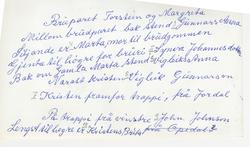 Brudparet Torstein og Margreta
Millom brudparet bak stend Gunnars Anna
Sitjande er Marta, mor til brudgommen
Gjenta til høgre for bruri er Synva Johannesdotter
Bak om Gamla Marta stend Viglik's Anna
Harald Kristen Viglik Gunnarson
I Kristen framfor trappi, frå Jordal
På trappi frå vinstre er John Johnson
Lengst til høgre er Kristens Brita frå Opedal?